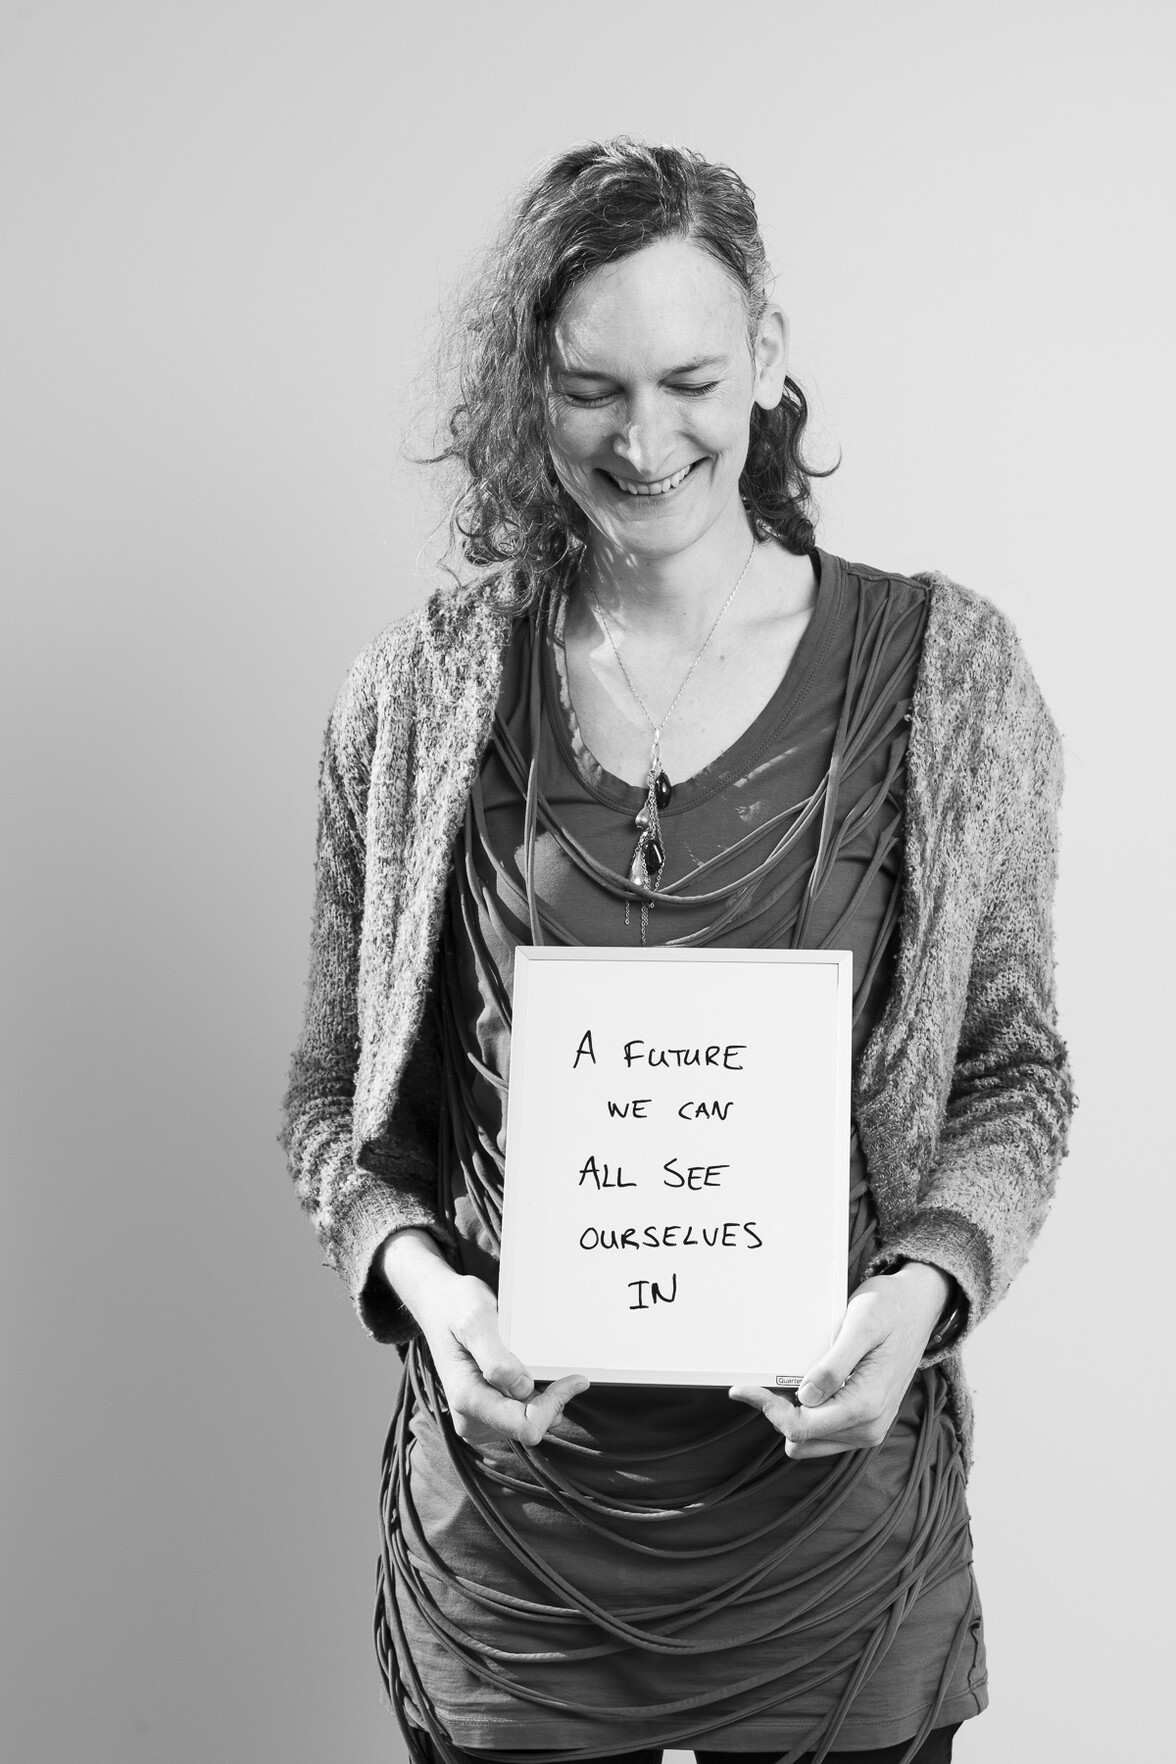 A FUTURE
WE CAN
ALL SEE
OURSELVES
IN